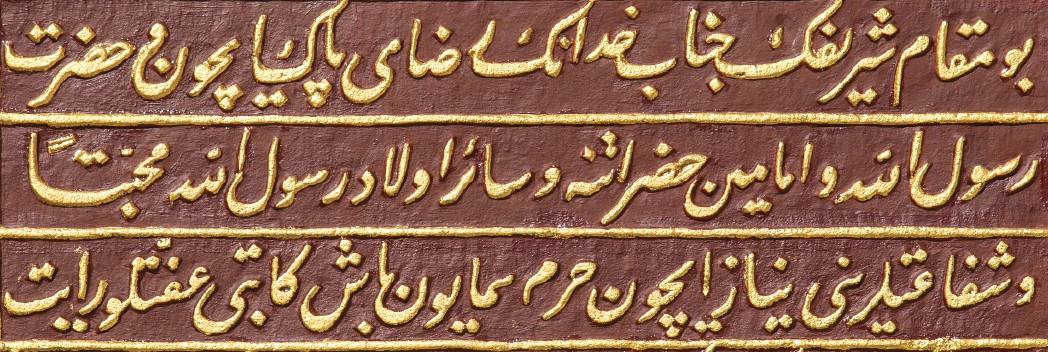 بو مقام شريفك جناب خدانك ضاى پاكى ايچون فى حضرت
رسول الله و امامين حضراتنه و سائر اولاد رسول الله محبتاً
و شفاعتلرنى نياز ايچون حرم همايون باش كاتبى عفتلو رايت